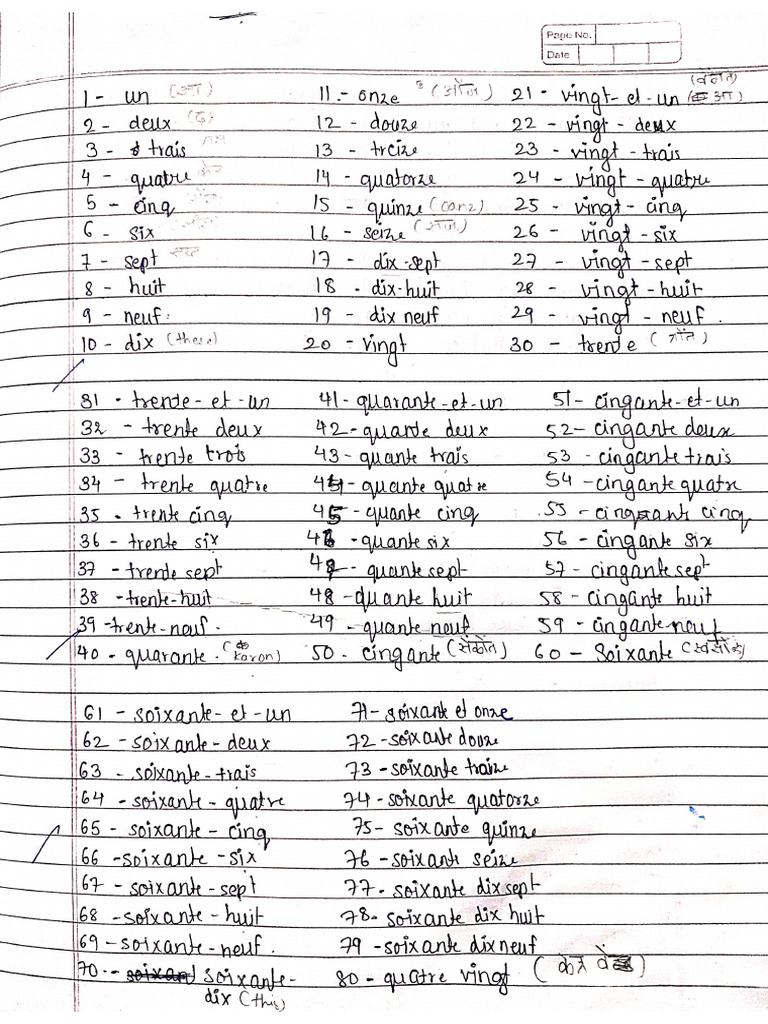 Page No.
Date
1 - un (आ) 11.- onze (ओंज) 21 - vingt-et-un
2 - deux (द) 12 - douze 22 - vingt - deux
3 - trais 13 - treize 23 - vingt - trais
4 - quatre 14 - quatorze 24 - vingt - quatre
5 - cinq 15 - quinze (canz) 25 - vingt - cinq
6 - six 16 - seize 26 - vingt - six
7 - sept 17 - dix-sept 27 - vingt - sept
8 - huit 18 - dix-huit 28 - vingt - huit
9 - neuf. 19 - dix neuf 29 - vingt - neuf.
10 - dix (these) 20 - vingt 30 - trente
31 - trente-et-un 41- quarante-et-un 51- cinqante-et-un
32 - trente deux 42- quante deux 52- cinqante deux
33 - trente trois 43 - quante trais 53 - cinqante trais
34 - trente quatre 44 - quante quatre 54 - cinqante quatre
35 - trente cinq 45 - quante cinq 55 - cinqante cinq
36 - trente six 46 - quante six 56 - cinqante six
37 - trente sept 47 - quante sept 57 - cinqante sept
38 - trente-huit 48 - quante huit 58 - cinqante huit
39 - trente-neuf. 49 - quante neuf 59 - cinqante neuf
40 - quarante. (karon) 50 - cinqante 60 - Soixante
61 - soixante-et-un 71- soixante et onze
62 - soixante-deux 72 - soixante douze
63 - soixante-trais 73 - soixante traize
64 - soixante - quatre 74 - soixante quatorze
65 - soixante - cinq 75 - soixante quinze
66 - soixante - six 76 - soixante seize
67 - soixante - sept 77 - soixante dix sept
68 - soixante - huit 78 - soixante dix huit
69 - soixante-neuf. 79 - soixante dix neuf
70 - soixante- 80 - quatre vingt
dix (this)